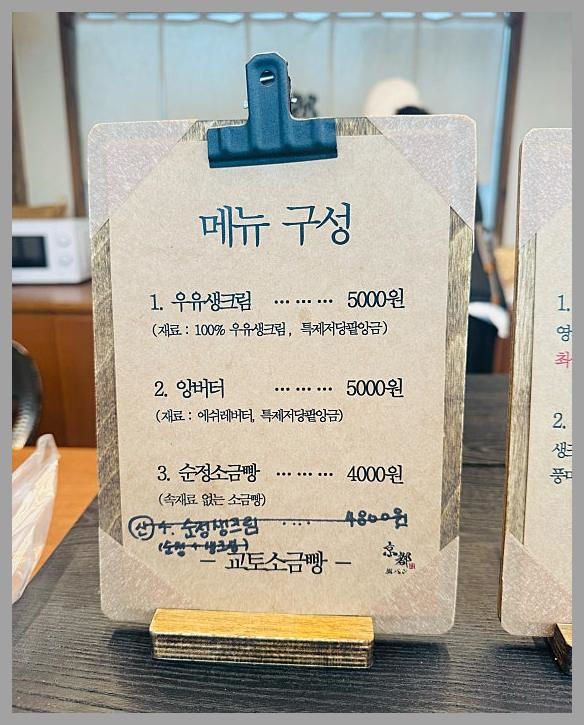 메뉴 구성
1. 우유생크림 ⋯ ⋯ ⋯ 5000원
(재료 : 100% 우유생크림, 특제저당팥앙금)
2. 앙버터 ⋯ ⋯ ⋯ 5000원
(재료 : 에쉬레버터, 특제저당팥앙금)
3. 순정소금빵 ⋯ ⋯ ⋯ 4000원
(속재료 없는 소금빵)
4. 순정생크림 ⋯ 4800원
(순정 + 생크림)
– 교토소금빵 –
京都
1.
영
최
2.
생크
풍미